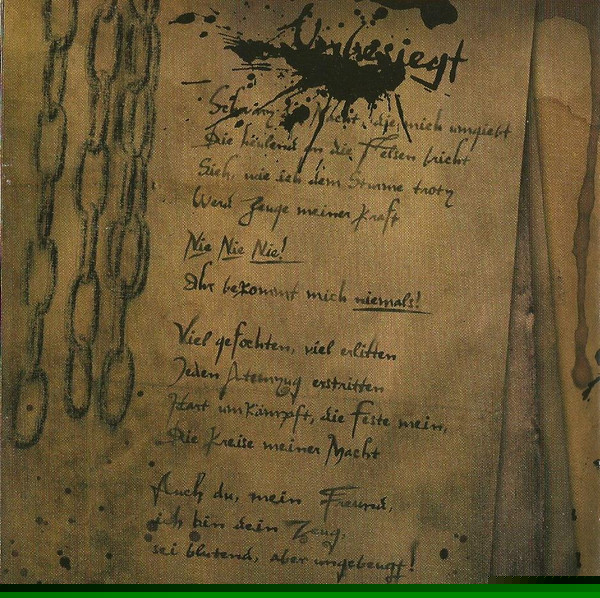 Unbesiegt
Schwarz die Nacht, die mich umgiebt
Die heulend an die Felsen bricht
Sieh, wie ich dem Sturme trotz
Werd Zeuge meiner Kraft
Nie Nie Nie!
Ihr bekommt mich niemals!
Viel gefochten, viel erlitten
Jeden Atemzug erstritten
Hart umkämpft, die Feste mein,
Die Kreise meiner Macht
Auch du, mein Freund,
ich bin dein Zeug,
sei blutend, aber ungebeugt!